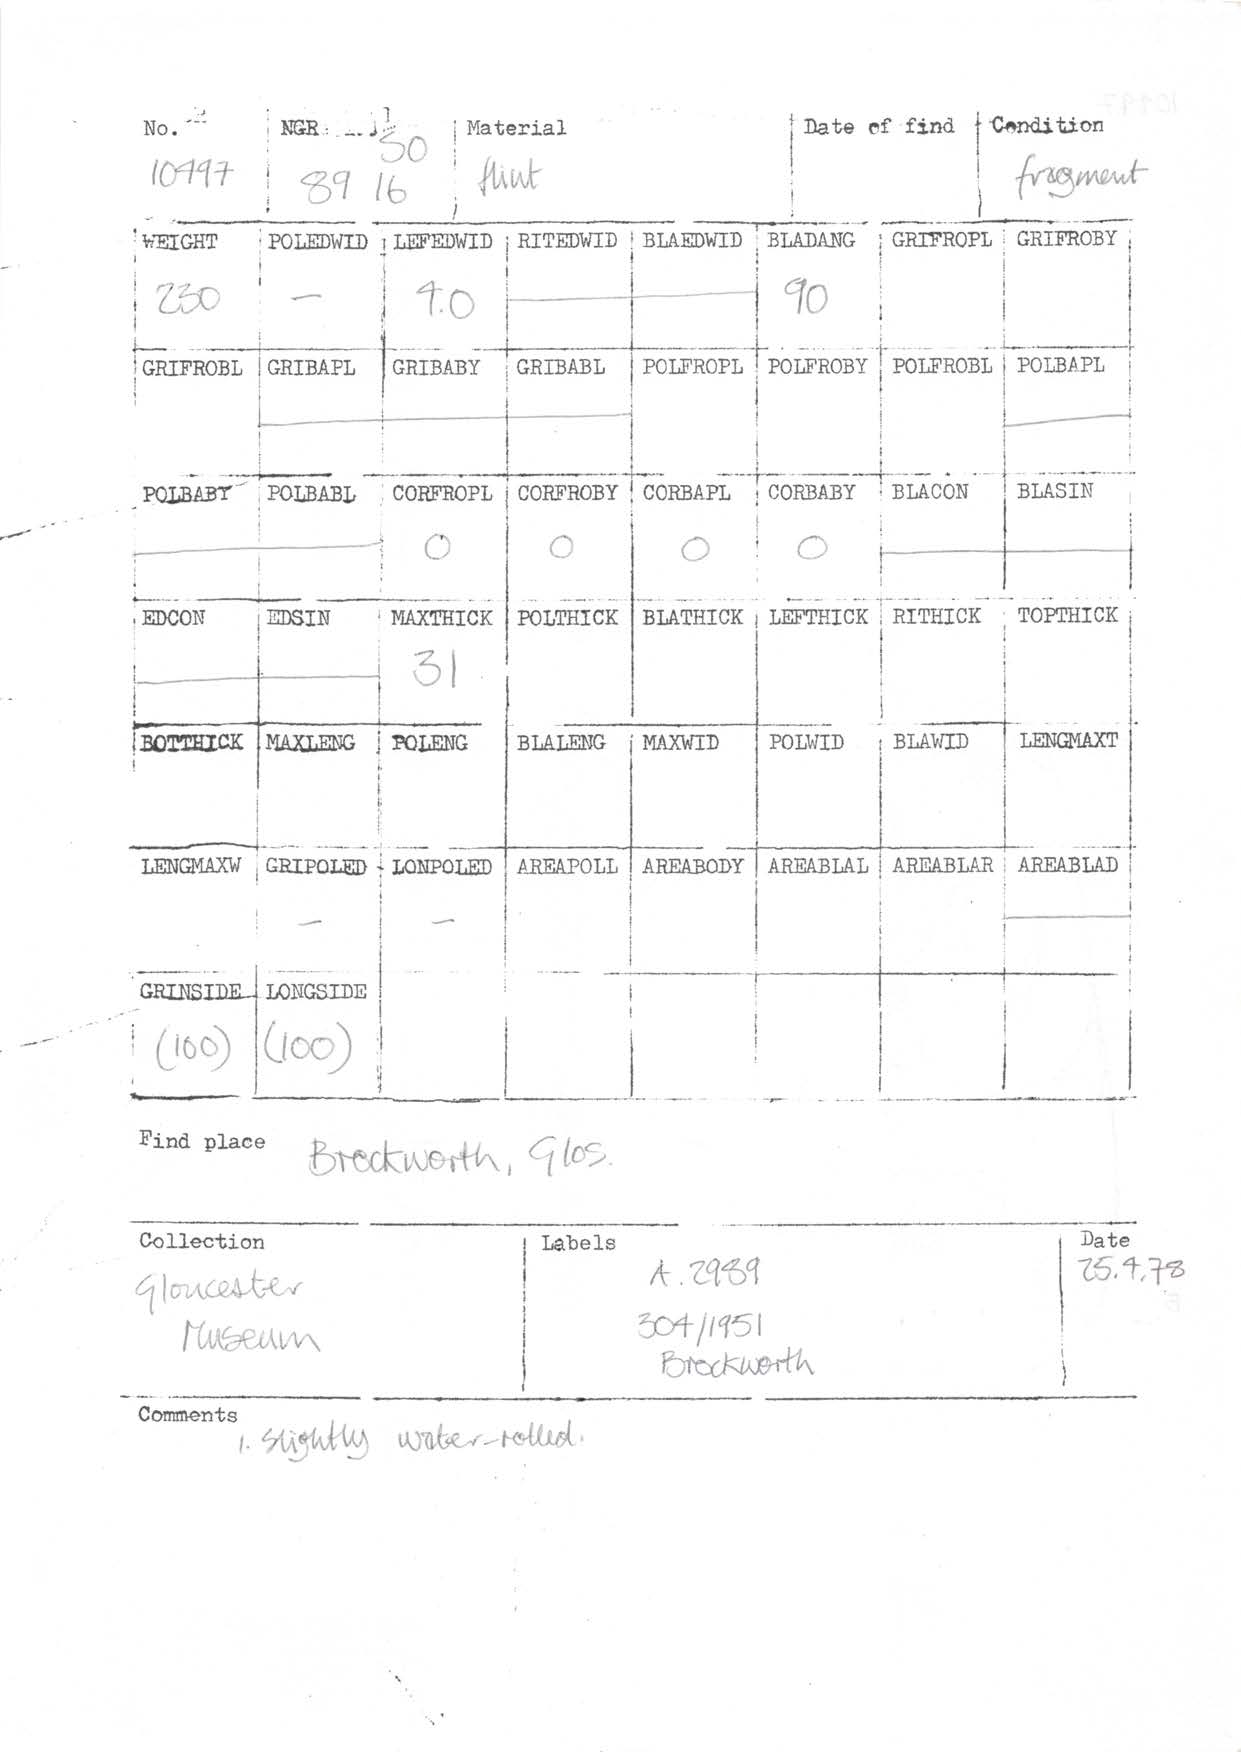 No. NGR Material Date of find Condition
SO
10497 89 16 flint fragment
WEIGHT POLEDWID LEFEDWID RITEDWID BLAEDWID BLADANG GRIFROPL GRIFROBY
230 — 4.0 90
GRIFROBL GRIBAPL GRIBABY GRIBABL POLFROPL POLFROBY POLFROBL POLBAPL
POLBABY POLBABL CORFROPL CORFROBY CORBAPL CORBABY BLACON BLASIN
0 0 0 0
EDCON EDSIN MAXTHICK POLTHICK BLATHICK LEFTHICK RITHICK TOPTHICK
31
BOTTHICK MAXLENG POLENG BLALENG MAXWID POLWID BLAWID LENGMAXT
LENGMAXW GRIPOLED LONPOLED AREAPOLL AREABODY AREABLAL AREABLAR AREABLAD
— —
GRINSIDE LONGSIDE
(100) (100)
Find place Brockworth, Glos.
Collection Labels Date
Gloucester A.2989 25.4.78
Museum 304/1951
Brockworth
Comments
1. Slightly water-rolled.